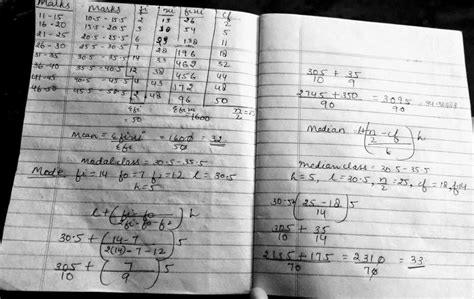 Marks Marks fi xi fixi cf
11-15 10.5-15.5 2 13 26 2
16-20 15.5-20.5 3 54 5
21-25 20.5-25.5 6 23 138 11
26-30 25.5-30.5 7 28 196 18
31-35 30.5-35.5 14 33 462 32
36-40 35.5-40.5 12 38 456 44
41-45 40.5-45.5 4 43 172 48
46-50 45.5-50.5 2 48 96 50
Σfi = 50 Σfixi = 1600
Mean = Σfixi / Σfi = 1600 / 50 = 32
modal class = 30.5-35.5
Mode f1 = 14 f0 = 7 f2 = 12 l = 30.5
h = 5
l + (f1 - f0 / 2f1 - f0 - f2) h
30.5 + (14-7 / 2(14)-7-12) 5
305/10 + (7/9) 5
305/10 + 35/9
2745 + 350 / 90 = 3095/90
Median = l + (n/2 - cf / f) h
Median class = 30.5-35.5
h = 5, l = 30.5, n/2 = 25, cf = 18, f = 14
30.5 + (25-18 / 14) 5
305/10 + 35/14
2135 + 175 / 70 = 2310/70 = 33